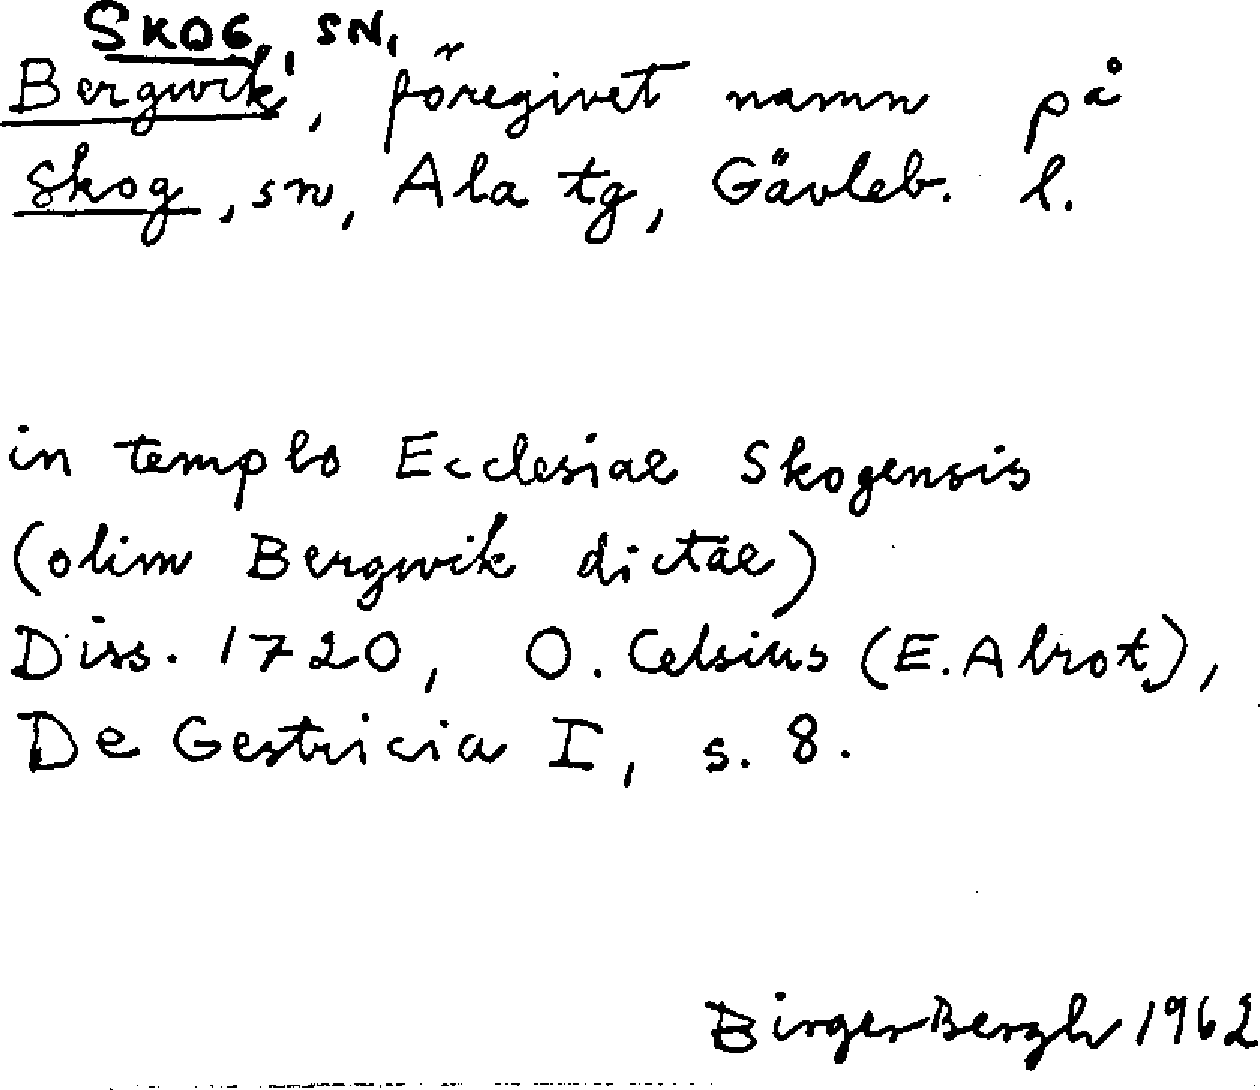 SKOG, SN,
Bergwik, föregivet namn på
Skog, sn, Ala tg, Gävleb. l.
in templo Ecclesiae Skogensis
(olim Bergwik dictae)
Diss. 1720, O. Celsius (E. Abrot),
De Gestricia I, s. 8.
Birger Bergh 1962